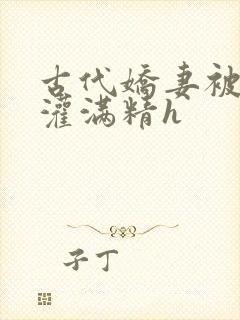 古代嬌妻被
灌满精h
子丁